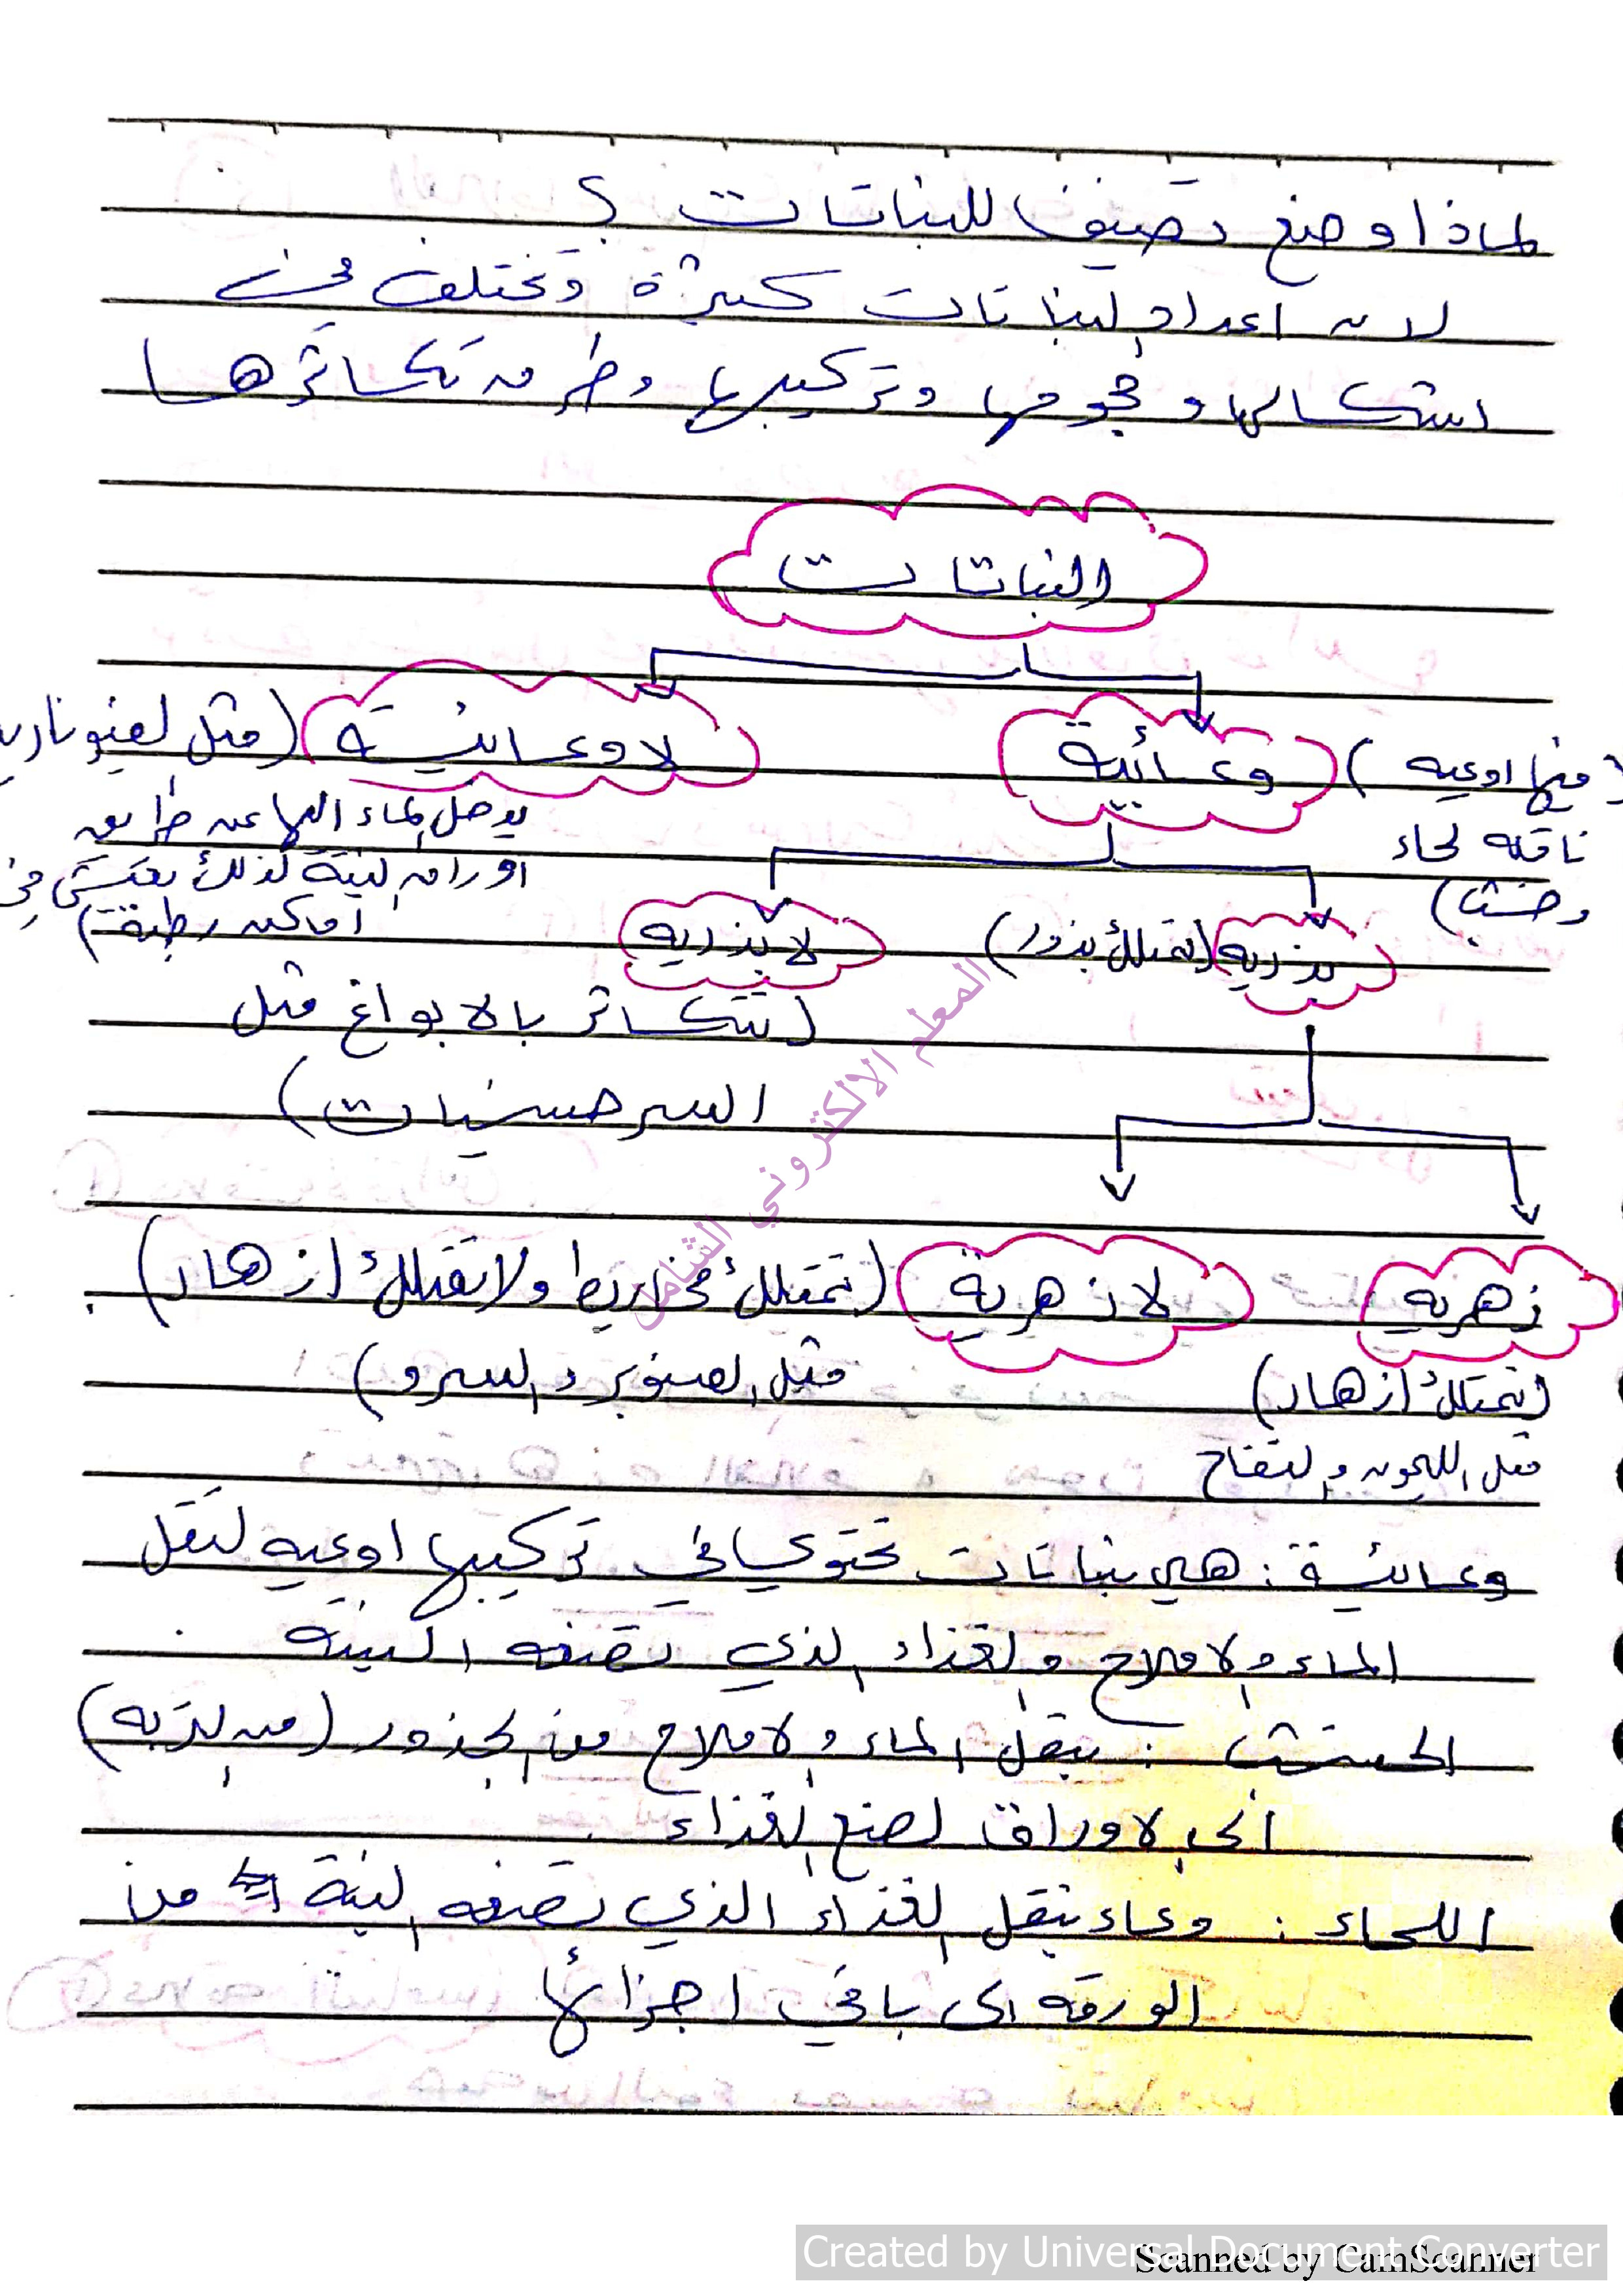 لماذا وضع تصنيف للنباتات ؟
لان اعداد النباتات كثيرة وتختلف في
اشكالها و حجومها وتركيبها وطرق تكاثرها
النباتات
وعائية
( فيها اوعيه
ناقله لحاء
وخشب )
لا وعائية
( مثل الفيوناريا
يوصل الماء اليها عن طريق
اوراق النبتة لذلك تعيش في
اماكن رطبة )
بذريه ( تمتلك بذور )
لا بذريه
( تتكاثر بالابواغ مثل
السرخسيات )
زهريه
( تمتلك ازهار )
مثل الليمون والتفاح
لا زهرية ( تمتلك مخاريط ولا تمتلك ازهار )
مثل الصنوبر والسرو )
وعائية : هي نباتات تحتوي في تركيبها اوعيه لنقل
الماء والاملاح والغذاء الذي تصنعه النبته
الخشب : ينقل الماء والاملاح من الجذور ( من التربه )
الى الاوراق لصنع الغذاء .
اللحاء : وعاء ينقل الغذاء الذي تصنعه النبتة من
الورقه الى باقي اجزائها
المعلم الالكتروني الشامل
Created by Universal Document Converter
Scanned by CamScanner